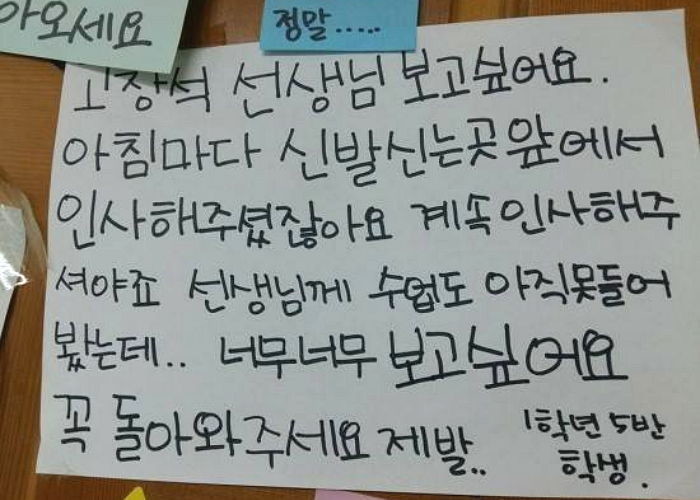 아오세요
정말.....
고창석 선생님 보고싶어요.
아침마다 신발신는곳 앞에서
인사해주셨잖아요 계속 인사해주
셔야죠 선생님께 수업도 아직못들어
봤는데.. 너무너무 보고싶어요
꼭 돌아와주세요 제발..
1학년 5반
학생.